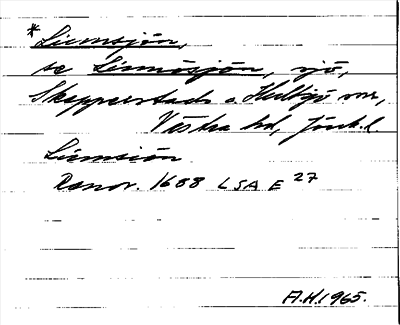 *Liemsjön,
se Linnösjön, sjö,
Skepperstads o. Hultsjö snr,
Västra hd, Jönk. l.
Liemsiön
Rannr. 1688 LSA E 27
A.H. 1965.